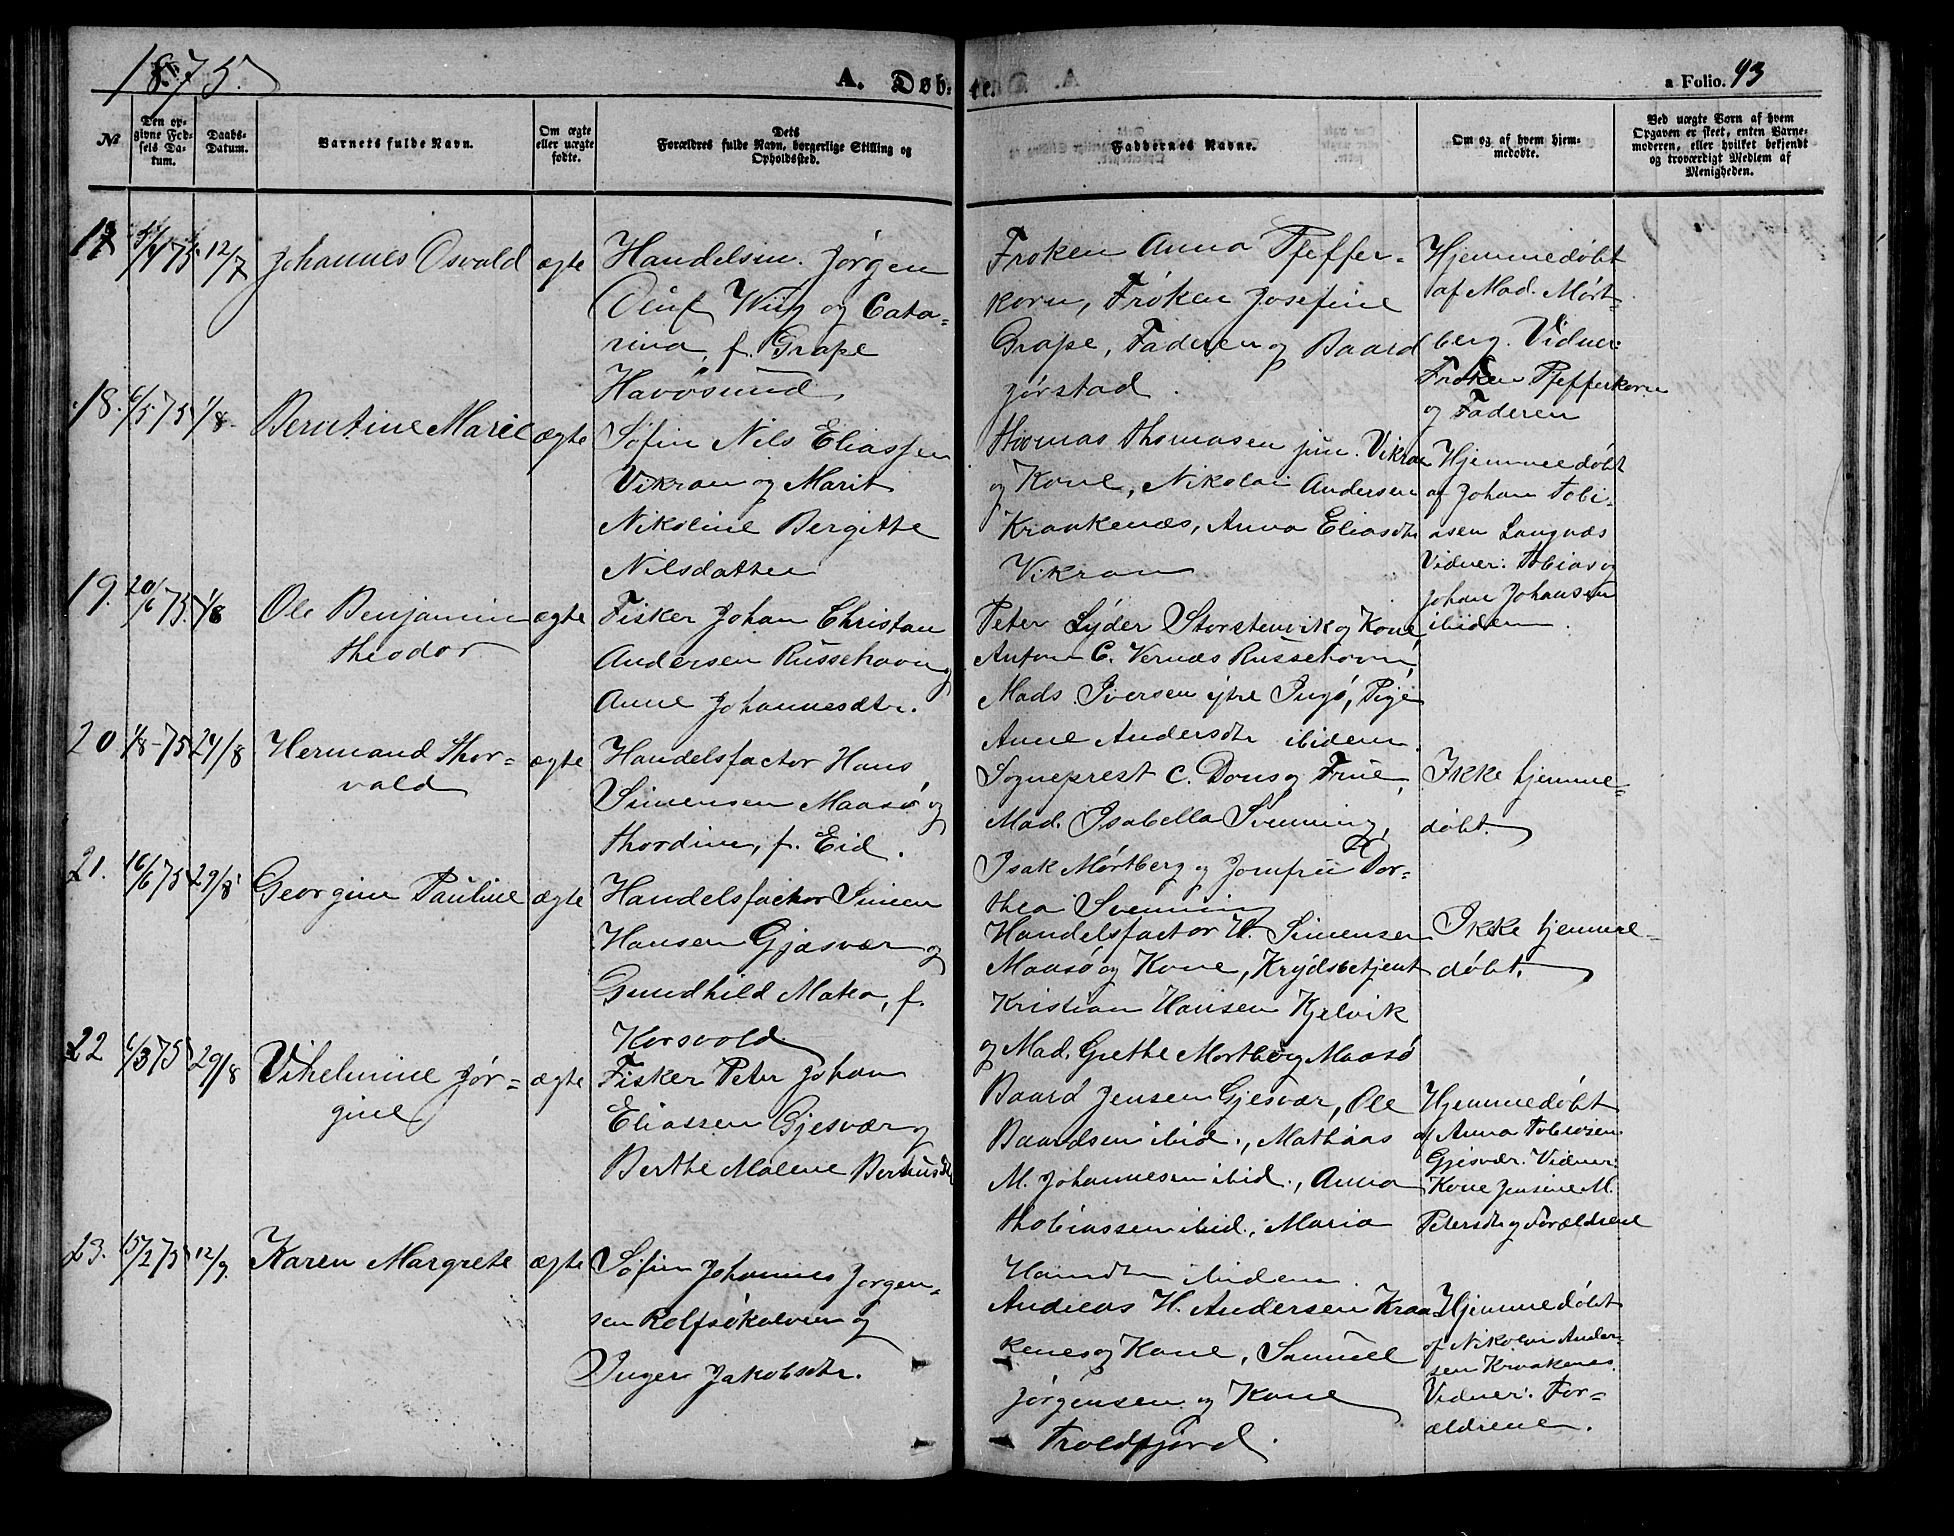 1875.
A. Døb-
te.
a Folio. 93
№
Den op-
givne Fød-
sels Da-
tum.
Daabs-
Datum.
Barnets fulde Navn.
Om ægte
eller uægte
fødte.
Dets
Forældres fulde Navn, borgerlige Stilling og
Opholdssted.
Faddernes Navne.
Om og af hvem hjem-
medøbte.
Ved uægte Børn af hvem
Opgaven er skeet, enten Barne-
moderen, eller hvilket bekjendt
og troværdigt Medlem af
Menigheden.
17 12/7 Johannes Osvald ægte
Handelsm. Jørgen
Oluf Wiig og Cata-
rina, f. Grape
Havøsund.
Frøken Anna Pfeffer-
korn, Frøken Josefine
Grape, Faderen og Baard
Jørstad.
Hjemmedøbt
af Mad. Mørt-
berg. Vidner:
Frøken Pfefferkorn
og Faderen
18. 6/5 75 1/8. Berntine Marie ægte
Søfin Nils Eliassen
Vikran og Marit
Nikoline Bergitte
Nilsdatter
Thomas Thomasen jun. Vikran
og Kone, Nikolai Andersen
Kraakenæs, Anna Eliasdtr
Vikran
Hjemmedøbt
af Johan Tobi-
asen Langnæs
Vidner: Tobias og
Johan Johansen
ibidem.
19. 20/6 75. 1/8 Ole Benjamin
Theodor
ægte
Fisker Johan Christian
Andersen Russehavn og
Anne Johannesdtr.
Peter Lyder Storstenvik og Kone
Anton C. Vernæs Russehavn,
Mads Iversen ytre Ingø, Pige
Anne Andersdtr ibidem.
20 1/8-75 24/8 Hermand Thor-
vald
ægte
Handelsfactor Hans
Simensen Maasø og
Thordine, f. Eid.
Sogneprest C. Dons og Frue,
Mad. Isabella Svenning,
Isak Mørtberg og Jomfru Dor-
thea Svenning
Ikke hjemme-
døbt.
21. 16/6 75 29/8 Georgine Pauline ægte
Handelsfactor Simen
Hansen Gjæsvær og
Gundhild Mateo, f.
Korsvold
Handelsfactor H. Simensen
Maasø og Kone, Krydsbetjent
Kristian Hansen Kjelvik
og Mad. Grethe Mørtberg Maasø
Ikke hjemme-
døbt.
22 6/3 75 29/8 Vihelmine Jør-
gine
ægte
Fisker Peter Johan
Eliassen Gjesvær og
Berthe Malene
Baard Jensen Gjesvær, Ole
Baardsen ibid., Mathias
M. Johannesen ibid., Anna
Thobiassen ibid., Maria
ibidem.
Hjemmedøbt
af Anna Tobiasen
Gjesvær. Vidner:
Kone Jensine M.
Petersdtr og Forældrene
23. 15/2 75 12/9. Karen Margrete ægte
Søfin Johannes Jørgen-
sen Rolfsøkalven og
Inger Jakobsdtr.
Andreas H. Andersen Kraa-
kenes og Kone, Samuel
Jørgensen og Kone
Troldfjord.
Hjemmedøbt
af Nikolai Ander-
sen Kraakenes.
Vidner: For-
ældrene.